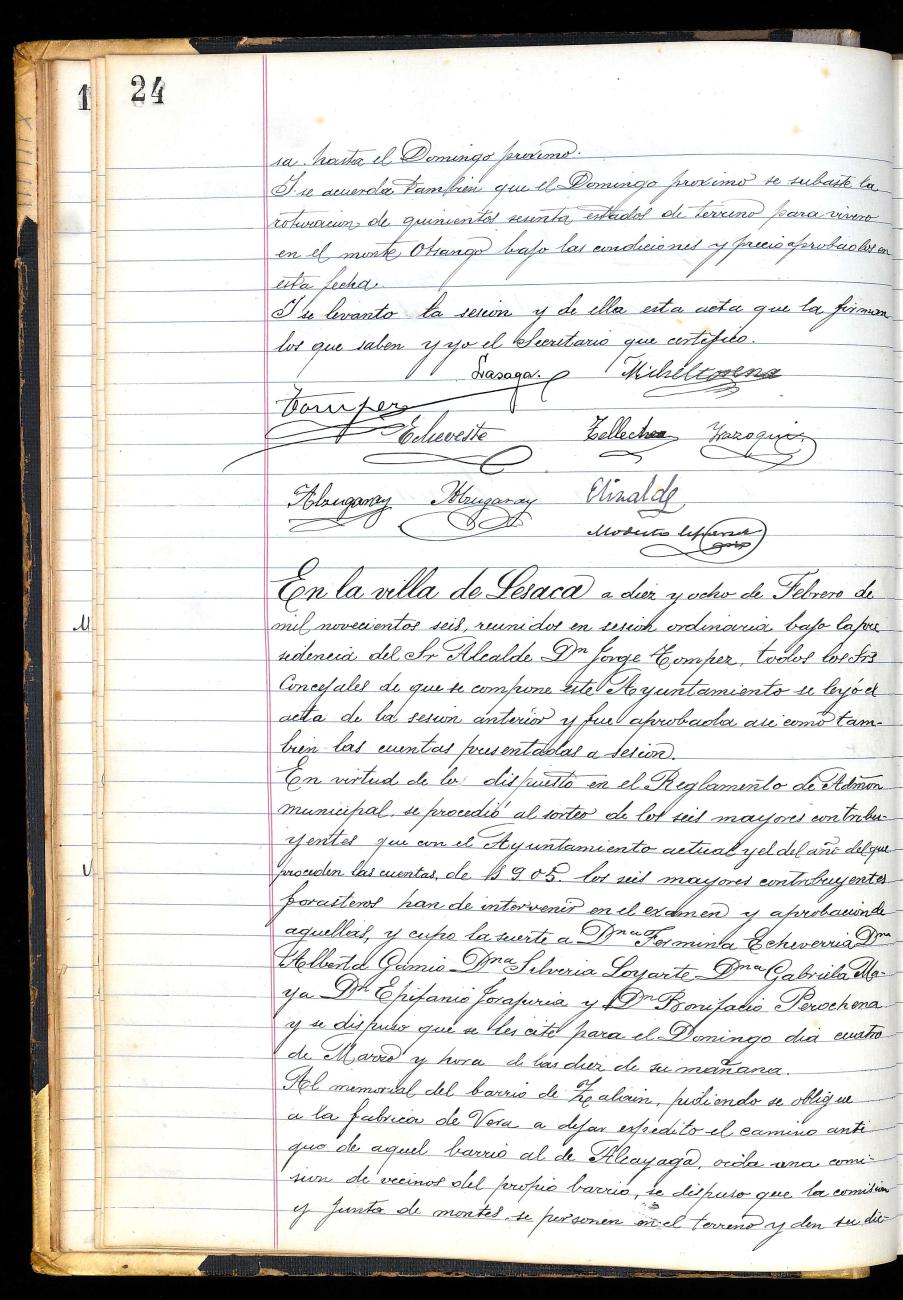 1 24
sa. hasta el Domingo proximo.
Y se acuerda tambien que el Domingo proximo se subaste la
roturacion de quinientos sesenta estados de terreno para vivero
en el monte Otsango bajo las condiciones y precio aprobados en
esta fecha.
Y se levanto la sesion y de ella esta acta que la firman
los que saben y yo el Secretario que certifico.
Lasaga. Micheltorena
Tompez
Echeveste Tellechea Irazoqui
Alzugaray Alzugaray Elizalde
Modesto
En la villa de Lesaca a diez y ocho de Febrero de
mil novecientos seis, reunidos en sesion ordinaria bajo la pre
sidencia del Sr Alcalde Dn Jorge Tompez, todos los Srs
Concejales de que se compone este Ayuntamiento se leyó el
acta de la sesion anterior y fue aprobada asi como tam-
bien las cuentas presentadas a sesion.
En virtud de lo dispuesto en el Reglamento de Admon
municipal, se procedió al sorteo de los seis mayores contribu-
yentes que con el Ayuntamiento actual y el del año del que
proceden las cuentas, de 1905. los seis mayores contribuyentes
forasteros han de intervenir en el examen y aprobacion de
aquellas, y cupo la suerte a Dna Fermina Echeverria Dna
Alberta Gamio Dna Silveria Loyarte Dna Gabriela Ma-
ya Dn Epifanio Jorajuria y Dn Bonifacio Perochena
y se dispuso que se les cite para el Domingo dia cuatro
de Marzo y hora de las diez de su mañana.
Al memorial del barrio de Zalain, pidiendo se obligue
a la fabrica de Vera a dejar expedito el camino anti
guo de aquel barrio al de Alcayaga, oida una comi-
sion de vecinos del propio barrio, se dispuso que la comision
y Junta de montes, se personen en el terreno y den su dic-